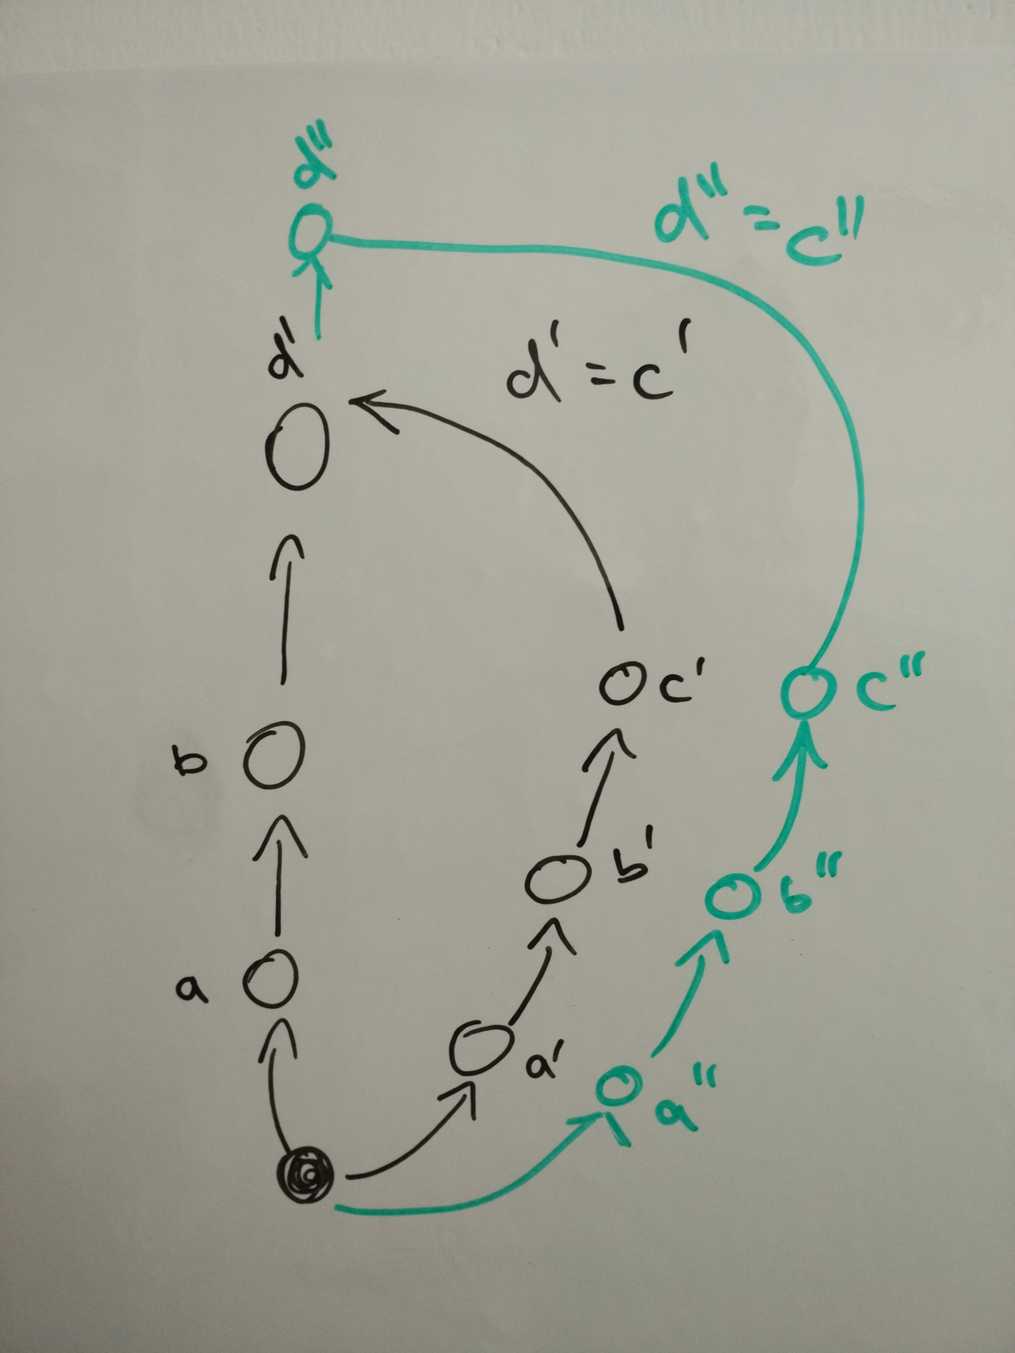 d"
d" = c"
d'
d' = c'
c'
c"
b
b'
b"
a
a'
a"